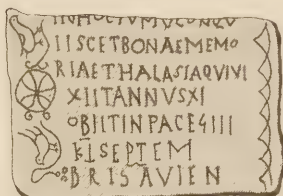 IISCETBONAEMEMO
RIAETHALASIAQVIVI
XIITANNVSXI
OBIITINPACE
KLSEPTEM
BRISAVIEN